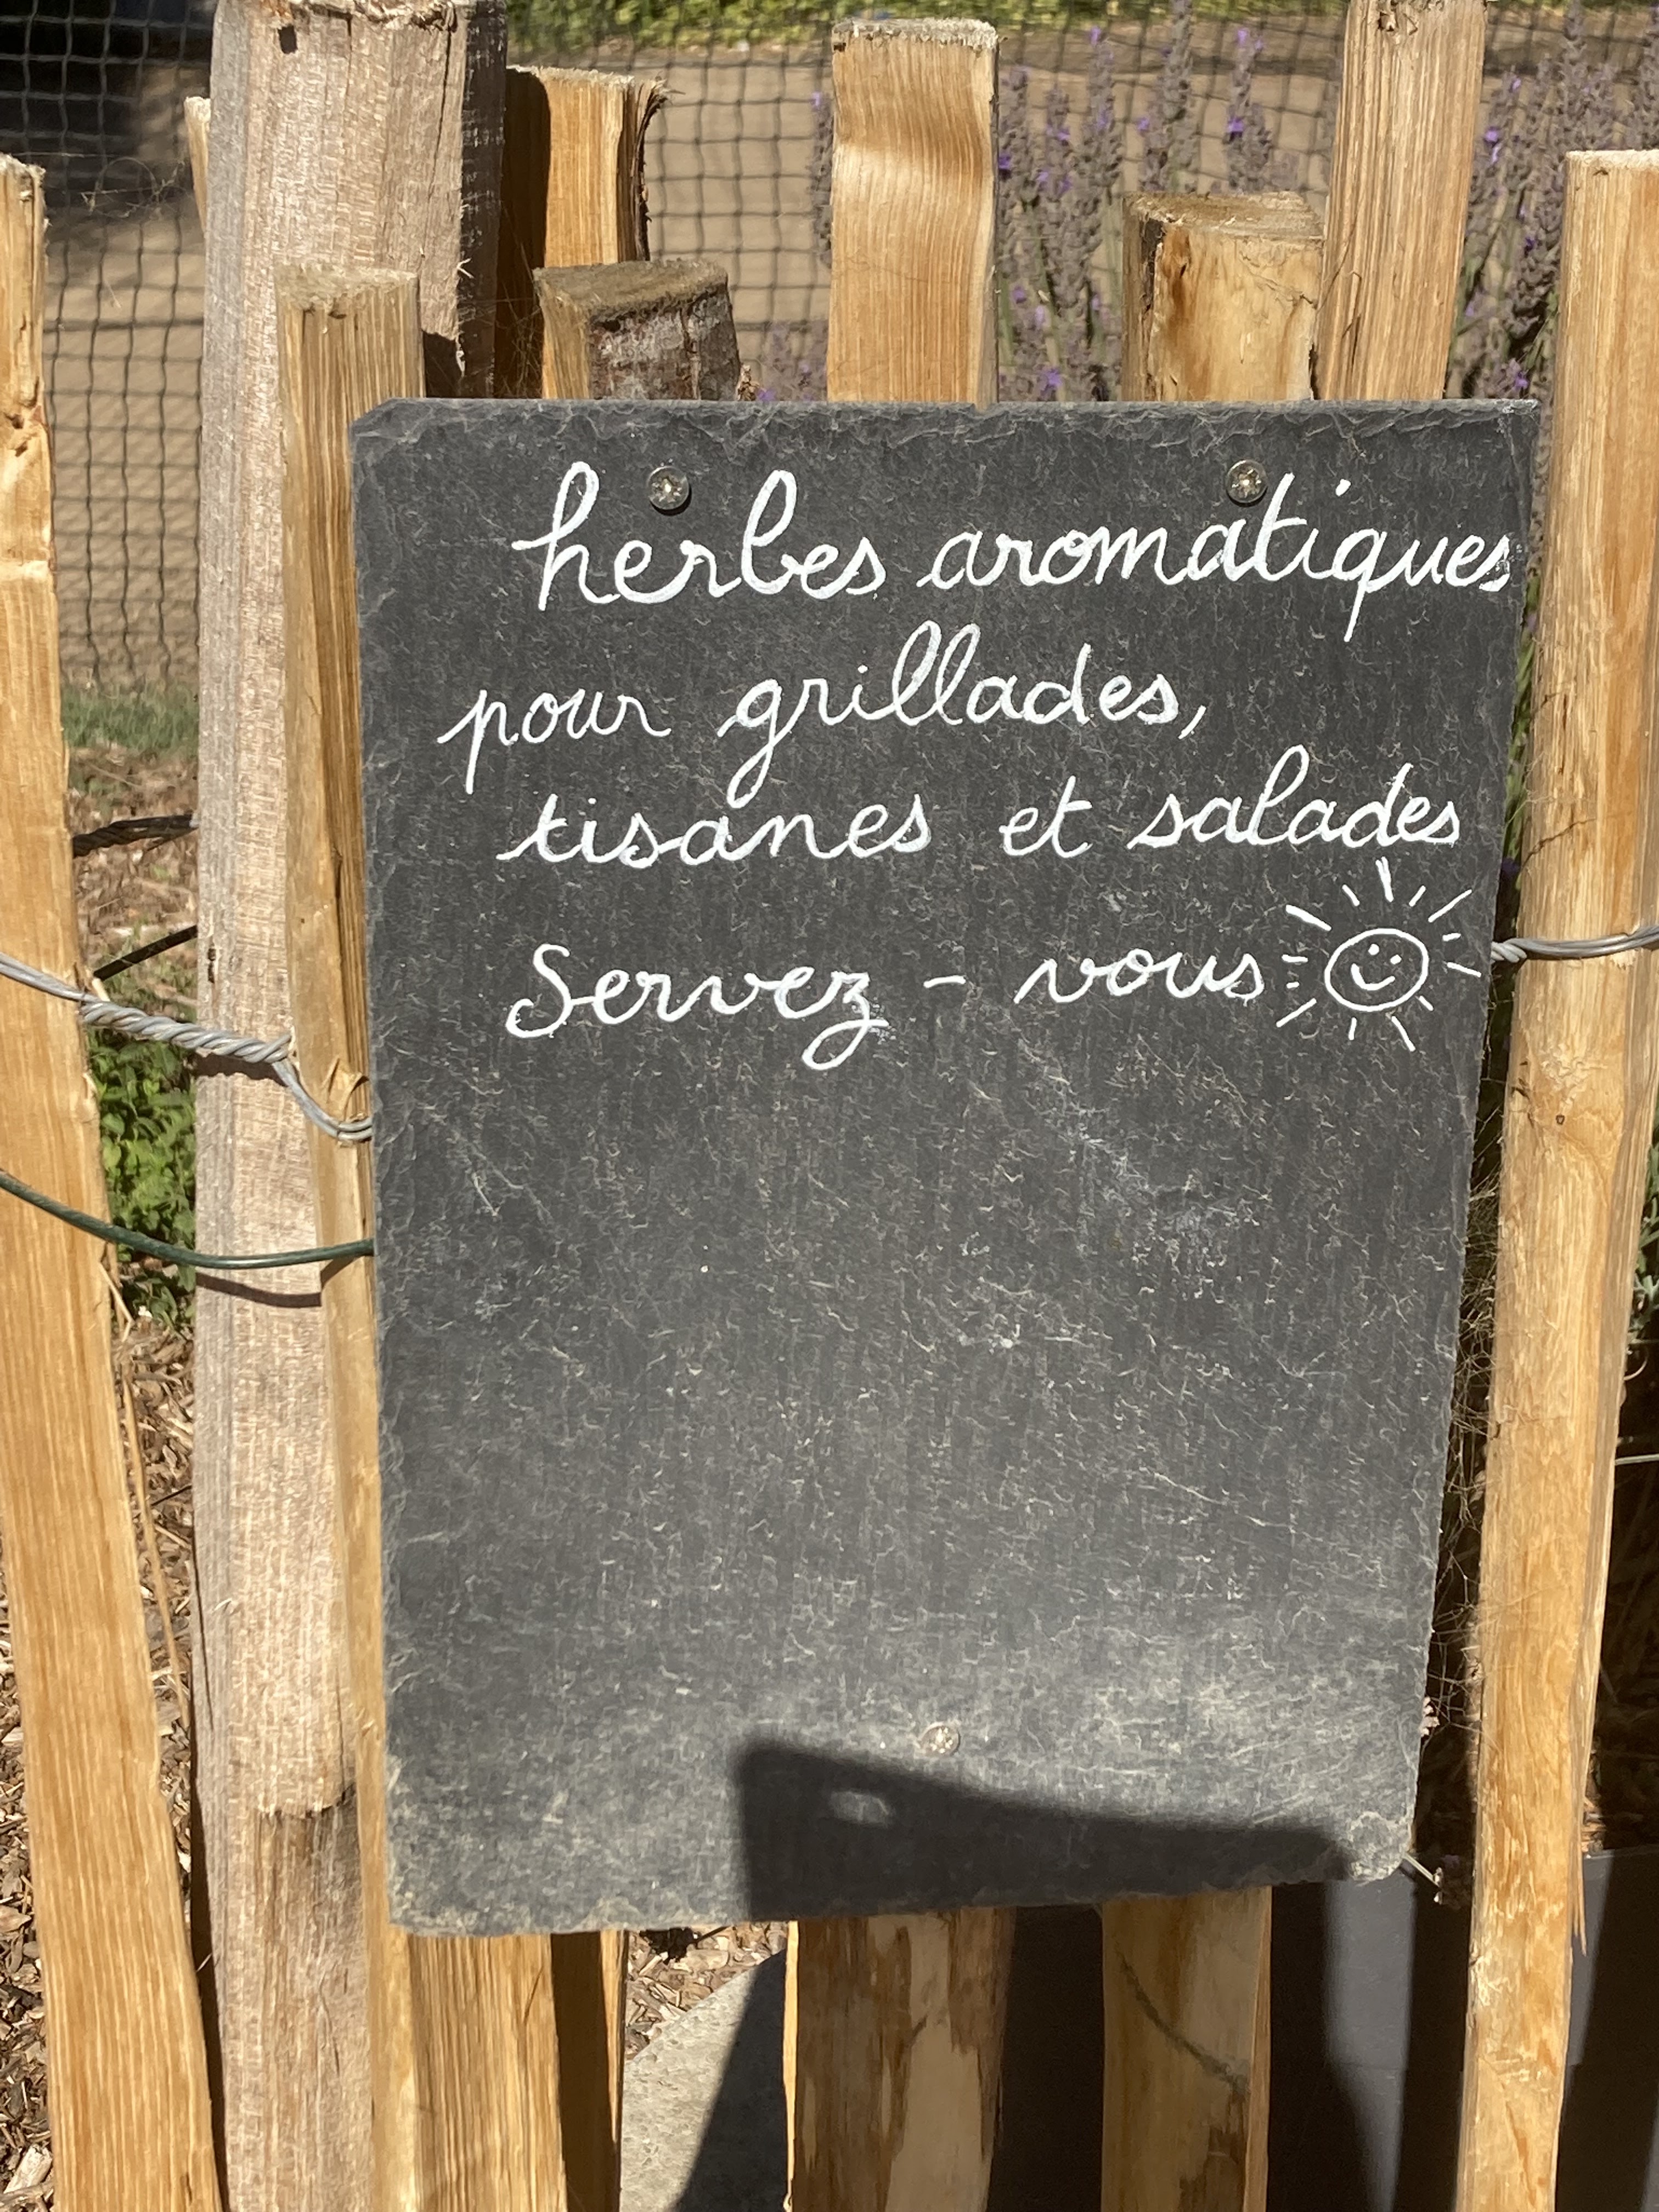 herbes aromatiques
pour grillades,
tisanes et salades
Servez-vous